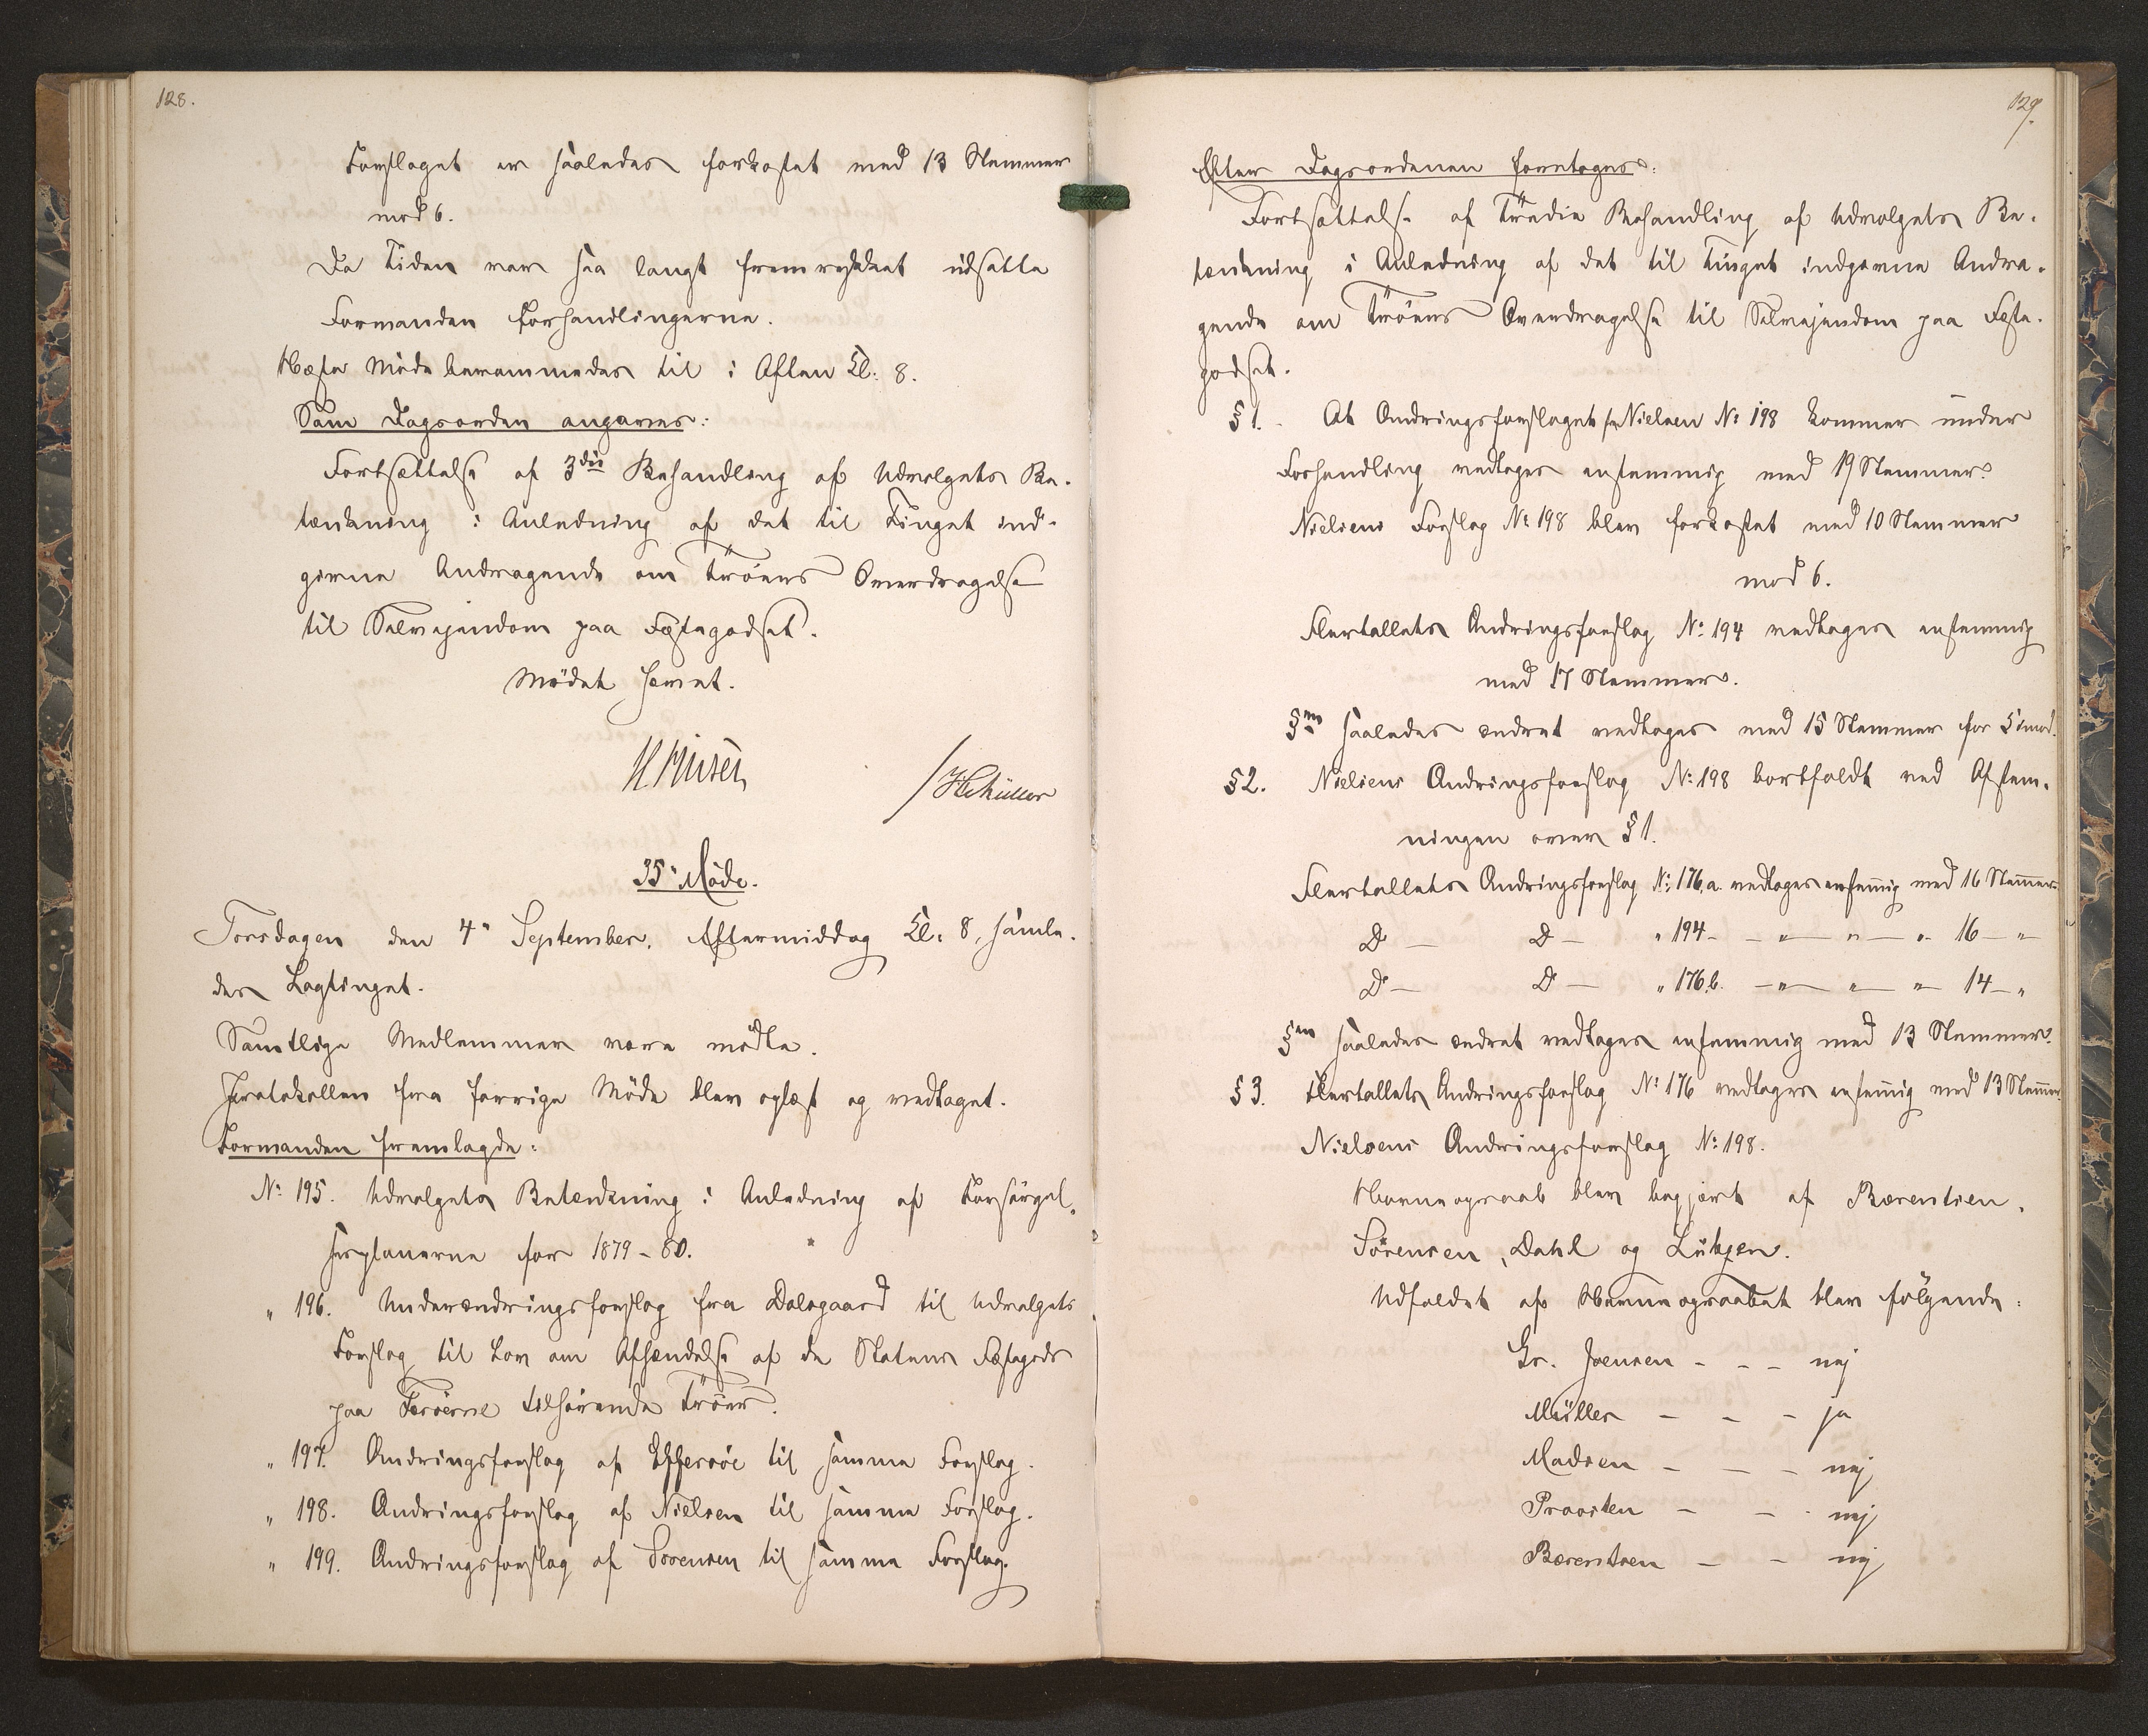 128.
Forslaget er saaledes forkastet med 13 Stemmer
mod 6.
Da Tiden var saa langt fremrykket udsatte
Formanden Forhandlingerne.
Næste Møde berammedes til i Aften Kl: 8.
Som Dagsorden angaves:
Fortsættelse af 3die Behandling af Udvalgets Be-
tænkning i Anledning af det til Tinget ind-
givne Andragende om Trøers Overdragelse
til Selvejendom paa Fæstegodset.
Mødet hævet.
HMüller
35te Møde.
Torsdagen den 4de September, Eftermiddag Kl: 8, samle-
des Lagtinget.
Samtlige Medlemmer vare mødte.
Protokollen fra forrige Møde blev oplæst og vedtaget.
Formanden fremlagde:
No 195. Udvalgets Betænkning i Anledning af Forsørgel-
sesplanerne for 1879-80.
" 196. Underændringsforslag fra Dalsgaard til Udvalgets
Forslag til Lov om Afhændelse af de Statens Fæstegods
paa Færøerne tilhørende Trøer.
" 197. Ændringsforslag af Effersøe til samme Forslag.
" 198. Ændringsforslag af Nielsen til samme Forslag.
" 199. Ændringsforslag af Sørensen til samme Forslag.
129.
Efter Dagsordenen foretoges:
Fortsættelse af Tredie Behandling af Udvalgets Be-
tænkning i Anledning af det til Tinget indgivne Andra-
gende om Trøers Overdragelse til Selvejendom paa Fæste-
godset.
§ 1. At Ændringsforslaget fra Nielsen No 198 kommer under
Forhandling vedtoges enstemmig med 19 Stemmer.
Nielsens Forslag No 198 blev forkastet med 10 Stemmer
mod 6.
Flertallets Ændringsforslag No 194 vedtoges enstemmig
med 17 Stemmer.
§en saaledes ændret vedtoges med 15 Stemmer for 5 imod.
§ 2. Nielsens Ændringsforslag No 198 bortfaldt ved Afstem-
ningen over § 1.
Flertallets Ændringsforslag No 176.a. vedtoges enstemmig med 16 Stemmer
Do — Do — " 194 — — " — " — " 16 — "
Do — Do — " 176.b. — " — " — " 14 — "
§en saaledes ændret vedtoges enstemmig med 13 Stemmer.
§ 3. Flertallets Ændringsforslag No 176 vedtoges enstemmig med 13 Stemmer.
Nielsens Ændringsforslag No 198.
Navneopraab blev begjært af Bærentsen,
Sørensen, Dahl og Lützen.
Udfaldet af Navneopraabet blev følgende:
Gr. Joensen - - - nej
Müller - - - ja
Madsen - - - nej
Provsten - - - nej
Bærentsen - - nej